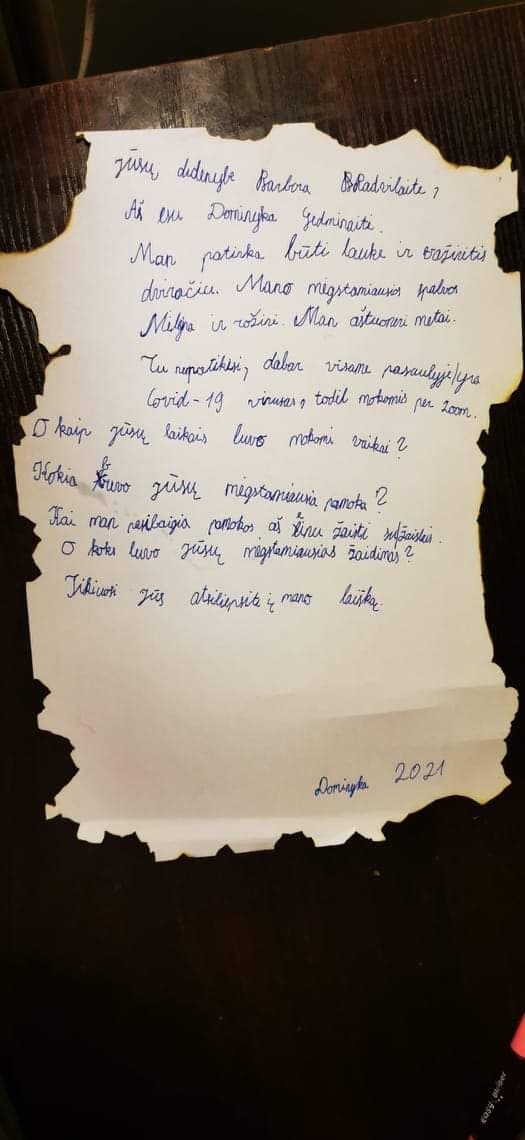 Jūsų didenybe Barbora Radvilaite,
Aš esu Dominyka Gedminaitė.
Man patinka būti lauke ir važinėtis
dviračiu. Mano mėgstamiausios spalvos
Mėlyna ir rožinė. Man aštuoneri metai.
Tu nepatikėsi, dabar visame pasaulyje yra
Covid-19 virusas, todil mokomis per zoom.
O kaip jūsų laikais buvo mokomi vaikai?
Kokia buvo jūsų mėgstamiausia pamoka?
Kai man pasibaigia pamokos aš einu žaisti su žaislais.
O koks buvo jūsų mėgstamiausias žaidimas?
Tikiuosi jūs atsiliepsite į mano laišką.
Dominyka 2021
easy